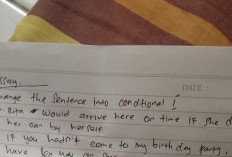 DATE :
ssay.
hange the sentence into conditional !
Rita Would arrive here on time if she d
her car by herself
if you hadn't come to my birth day party,
have